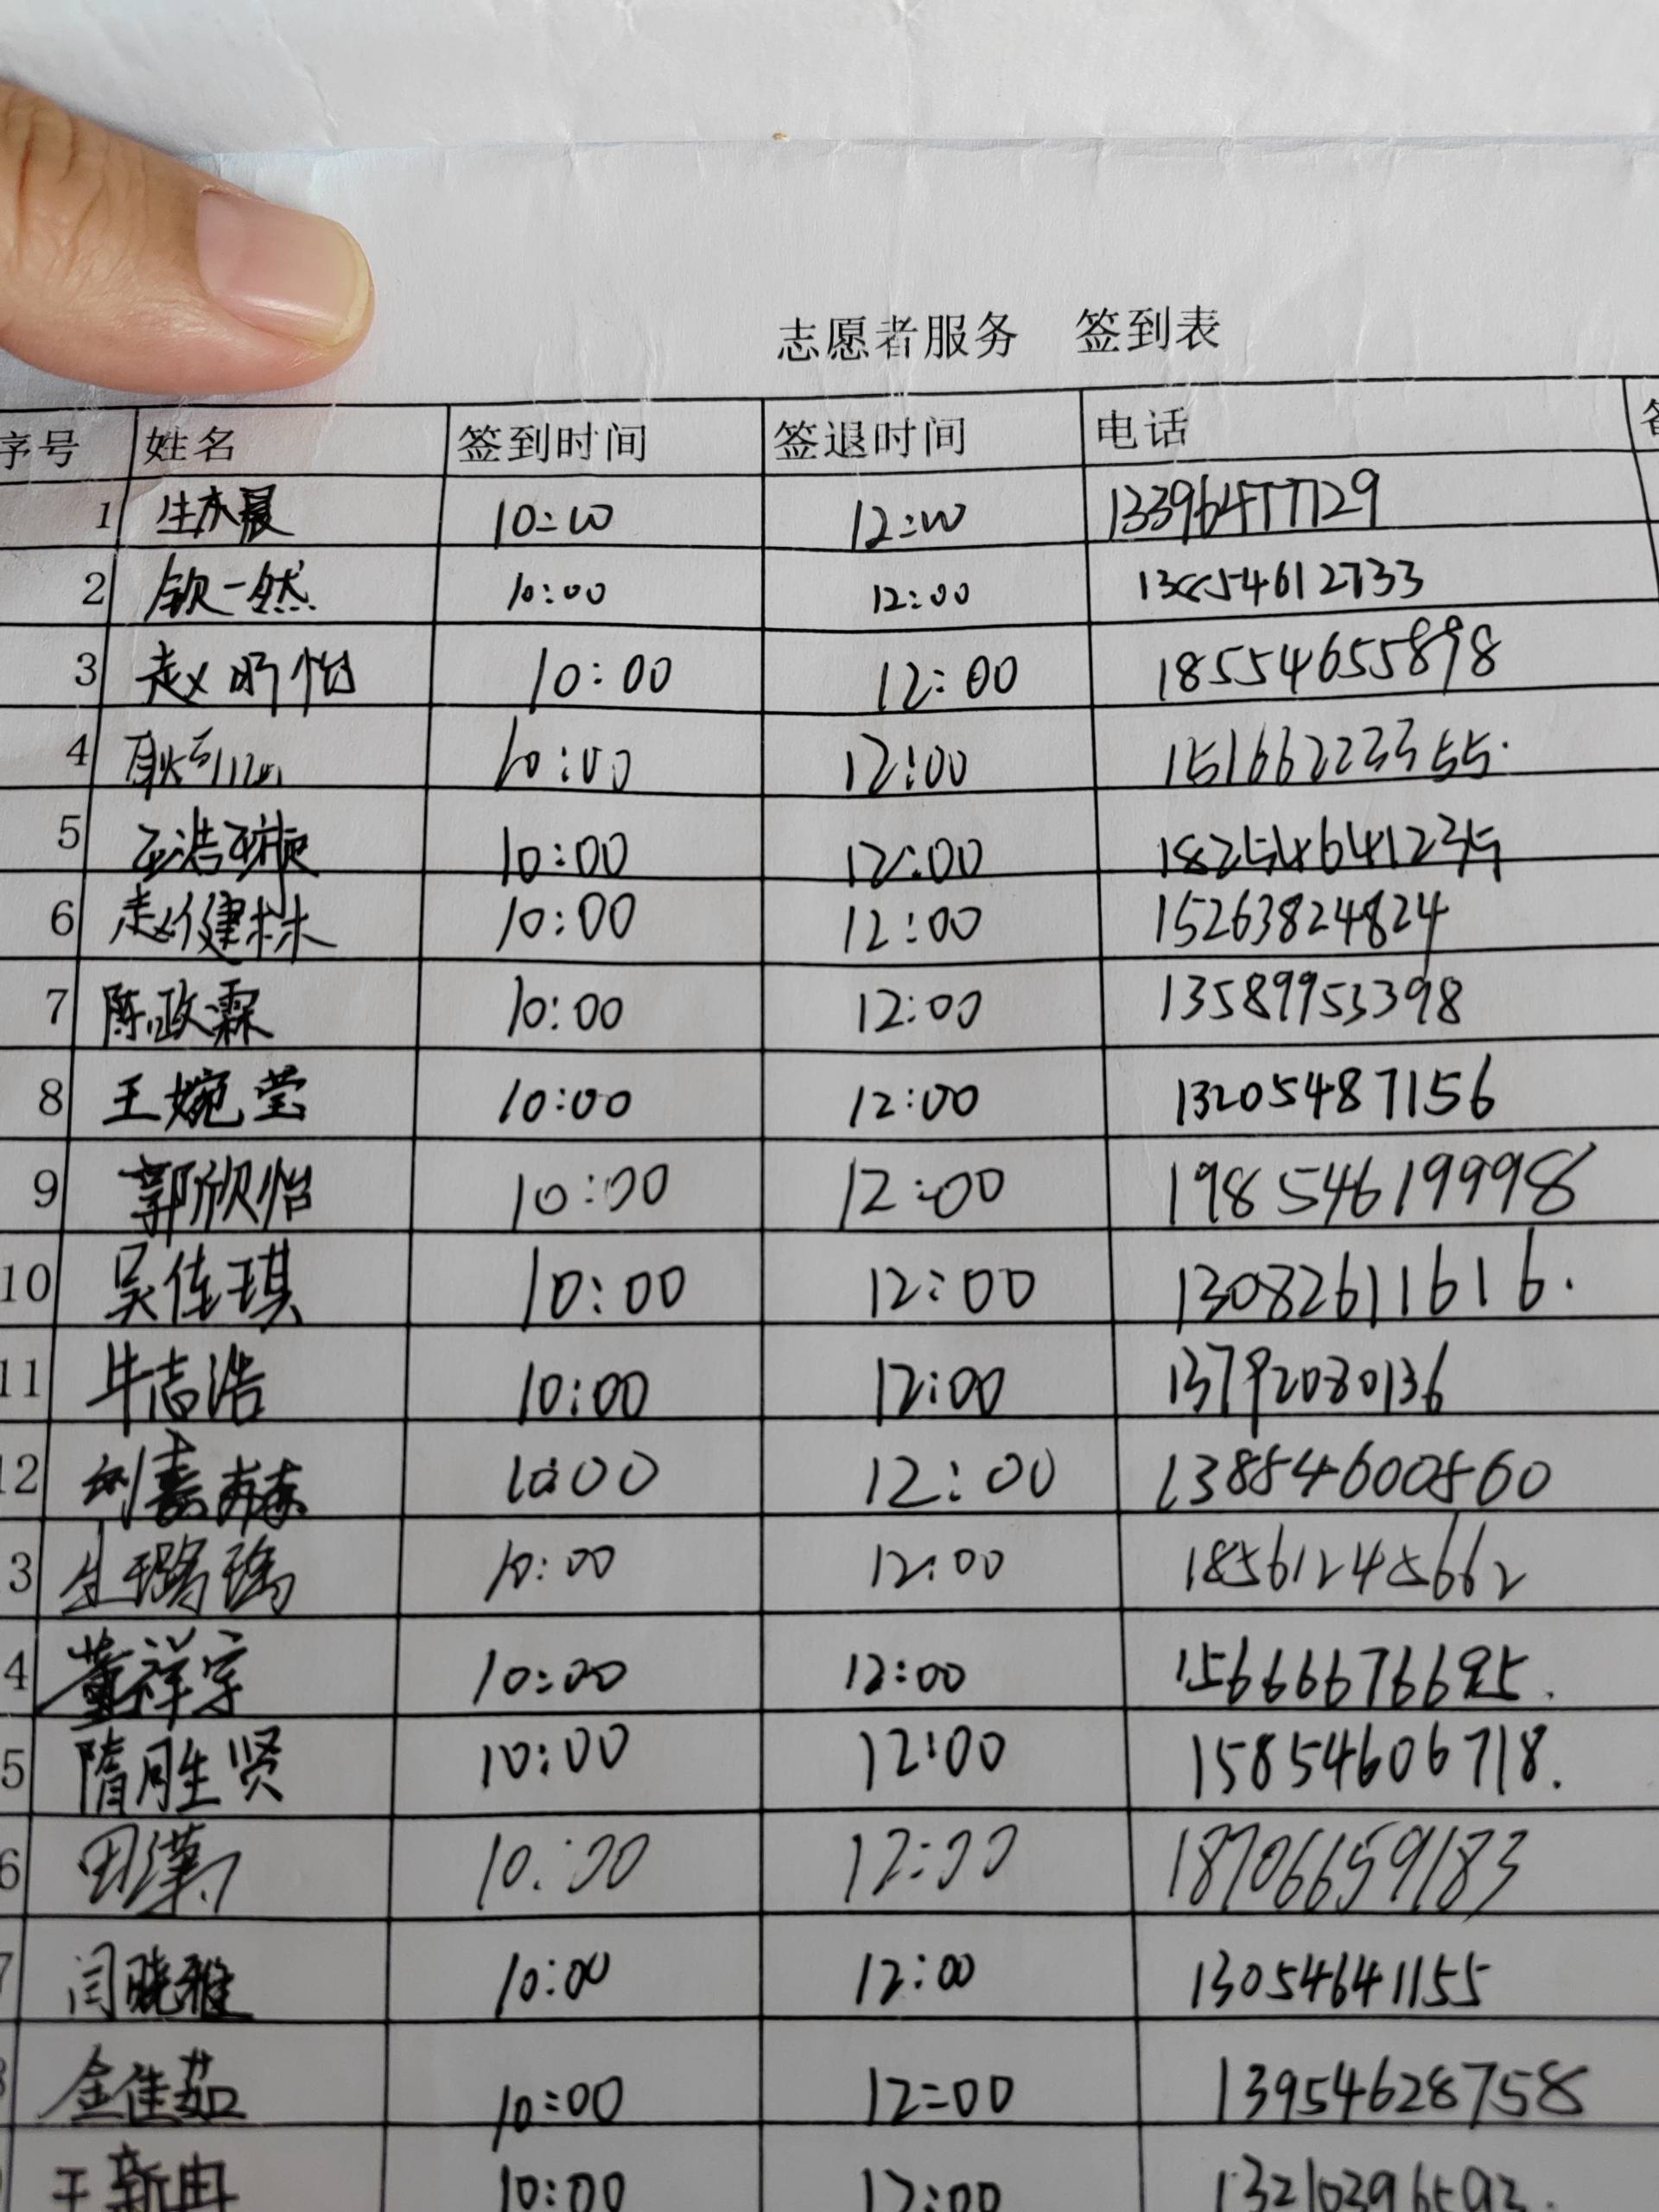 志愿者服务 签到表
序号 姓名 签到时间 签退时间 电话
1 10:00 12:00 13396477729
2 钦一然 10:00 12:00
3 赵昕怡 10:00 12:00 18554655898
4 10:00 12:00 15166223355.
5 王浩 10:00 12:00 18254641235
6 赵健林 10:00 12:00 15263824824
7 陈政霖 10:00 12:00 13589953398
8 王婉莹 10:00 12:00 13205487156
9 郭欣怡 10:00 12:00 198546199998
10 吴佳琪 10:00 12:00 13082611616.
11 牛志浩 10:00 12:00 13792080136
12 刘嘉 10:00 12:00 13854600560
3 生璐瑶 10:00 12:00 18561245662
4 董祥宇 10:00 12:00
5 隋胜贤 10:00 12:00 15854606718.
6 田 10:00 12:00 18706659183
7 闫晓雅 10:00 12:00 13054641155
金佳茹 10:00 12:00 13954628758
王新冉 10:00 12:00